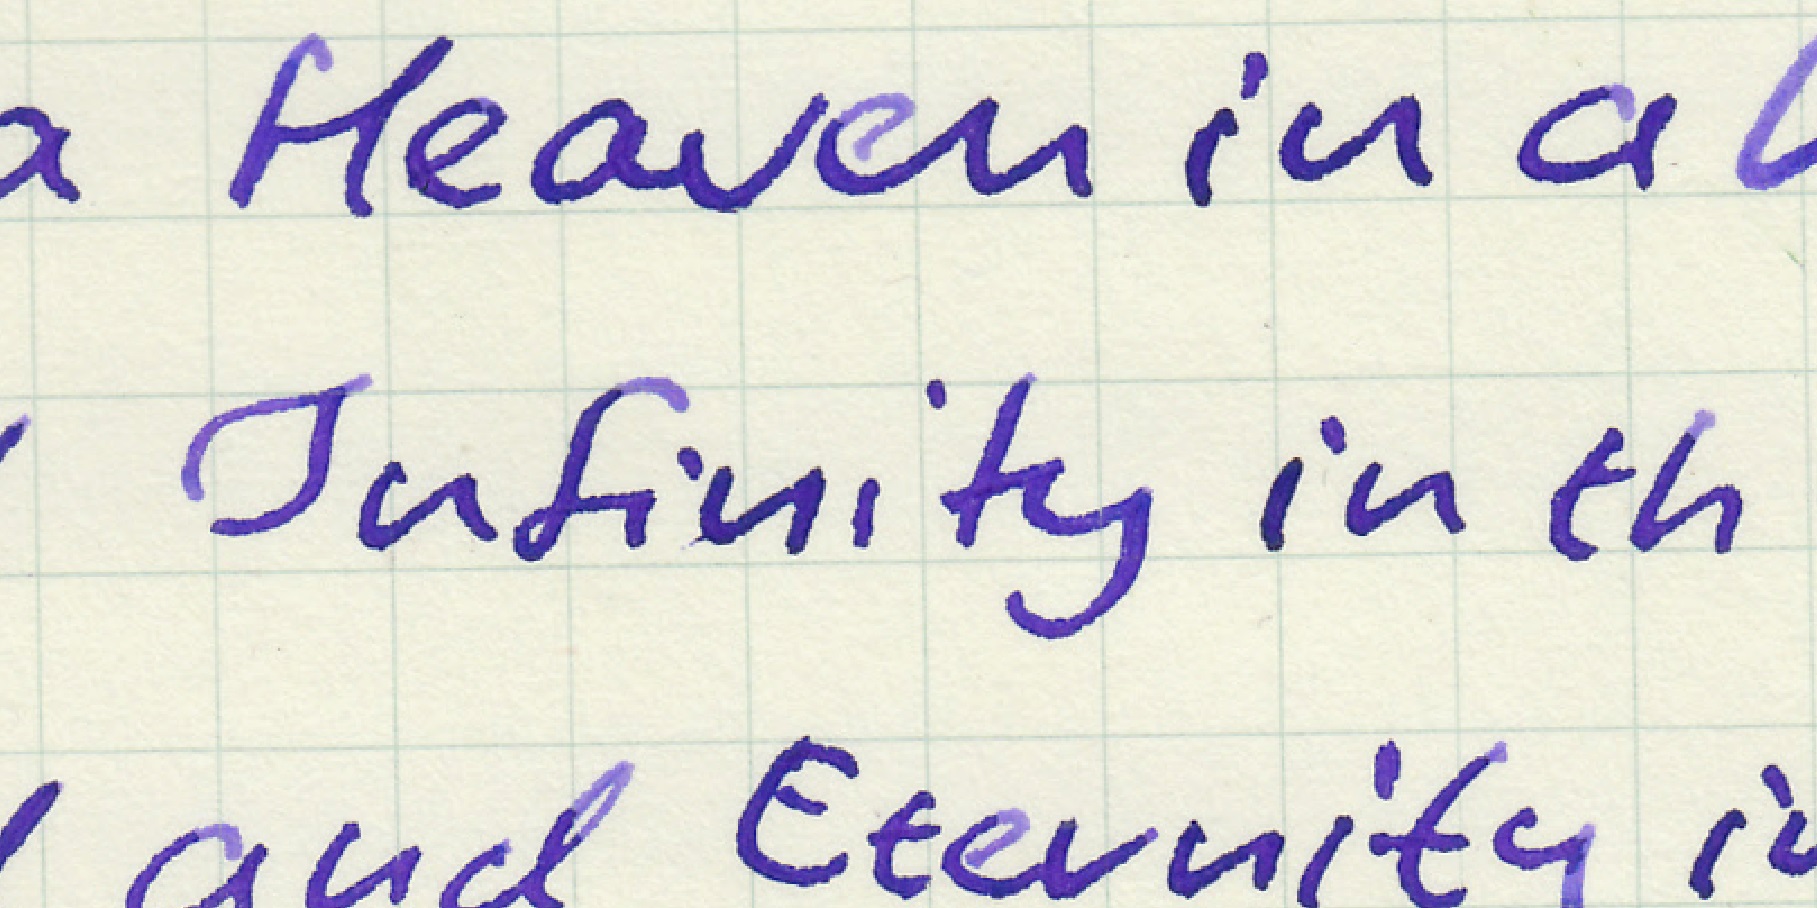 a Heaven in a
Infinity in th
and Eternity in